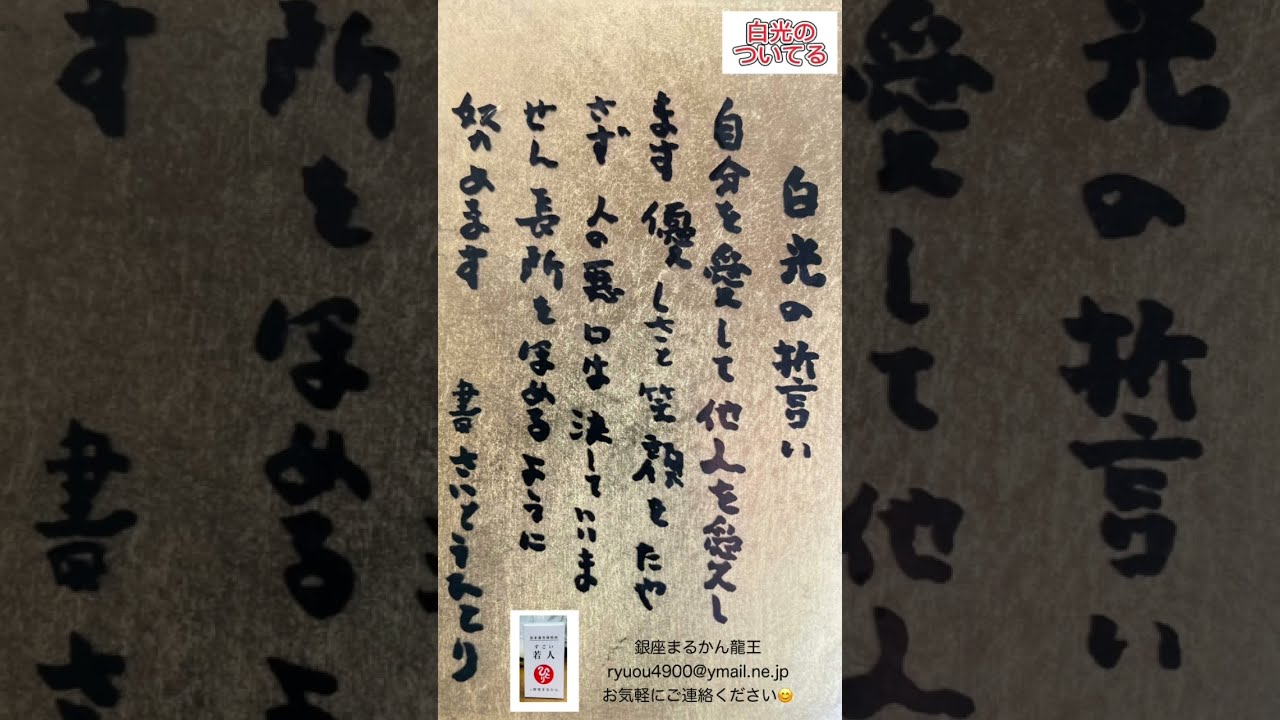 白光の
ついてる
白光の誓い
自分を愛して他人を愛し
ます 優しさと笑顔をたや
さず 人の悪口は決していいま
せん 長所をほめるように
努めます 書 さいとうひとり
すごい
若人
銀座まるかん
銀座まるかん龍王
ryuou4900@ymail.ne.jp
お気軽にご連絡ください😊